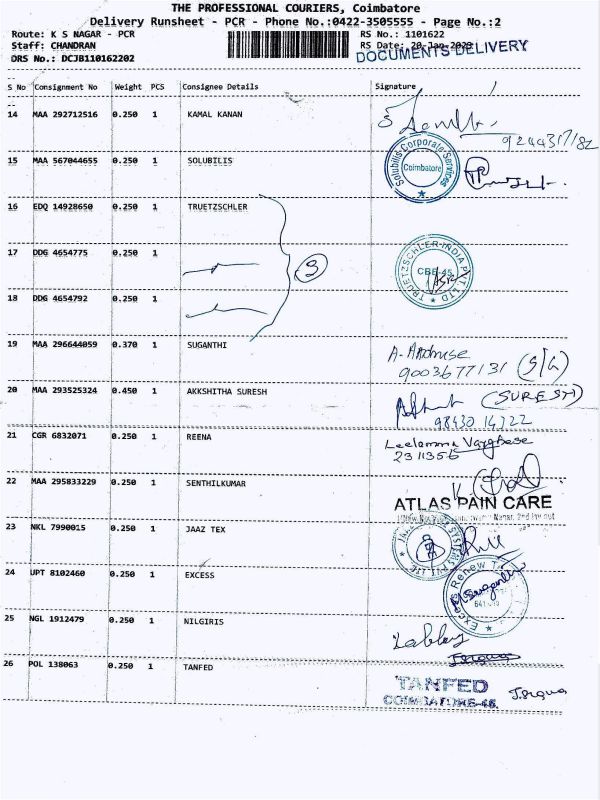 THE PROFESSIONAL COURIERS, Coimbatore
Delivery Runsheet - PCR - Phone No.:0422-3505555 - Page No.:2
Route: K S NAGAR - PCR RS No.: 1101622
Staff: CHANDRAN RS Date: 20-Jan-2023
DOCUMENTS DELIVERY
DRS No.: DCJB110162202
S No Consignment No Weight PCS Consignee Details Signature
14 MAA 292712516 0.250 1 KAMAL KANAN
9244317182
15 MAA 567044655 0.250 1 SOLUBILIS
Solubilis Corporate Services
Coimbatore
16 EDQ 14928650 0.250 1 TRUETZSCHLER
17 DDG 4654775 0.250 1
3
TRUETZSCHLER INDIA PVT. LTD
CBE-45
18 DDG 4654792 0.250 1
19 MAA 296644059 0.370 1 SUGANTHI
9003677131 (S/G)
20 MAA 293525324 0.450 1 AKKSHITHA SURESH
(SURESH)
98430 14722
21 CGR 6832071 0.250 1 REENA
Leelamma Varghese
2311356
22 MAA 295833229 0.250 1 SENTHILKUMAR
ATLAS PAIN CARE
23 NKL 7990015 0.250 1 JAAZ TEX
24 UPT 8102460 0.250 1 EXCESS
Renew
25 NGL 1912479 0.250 1 NILGIRIS
26 POL 138063 0.250 1 TANFED
TANFED
COIMBATORE-45.